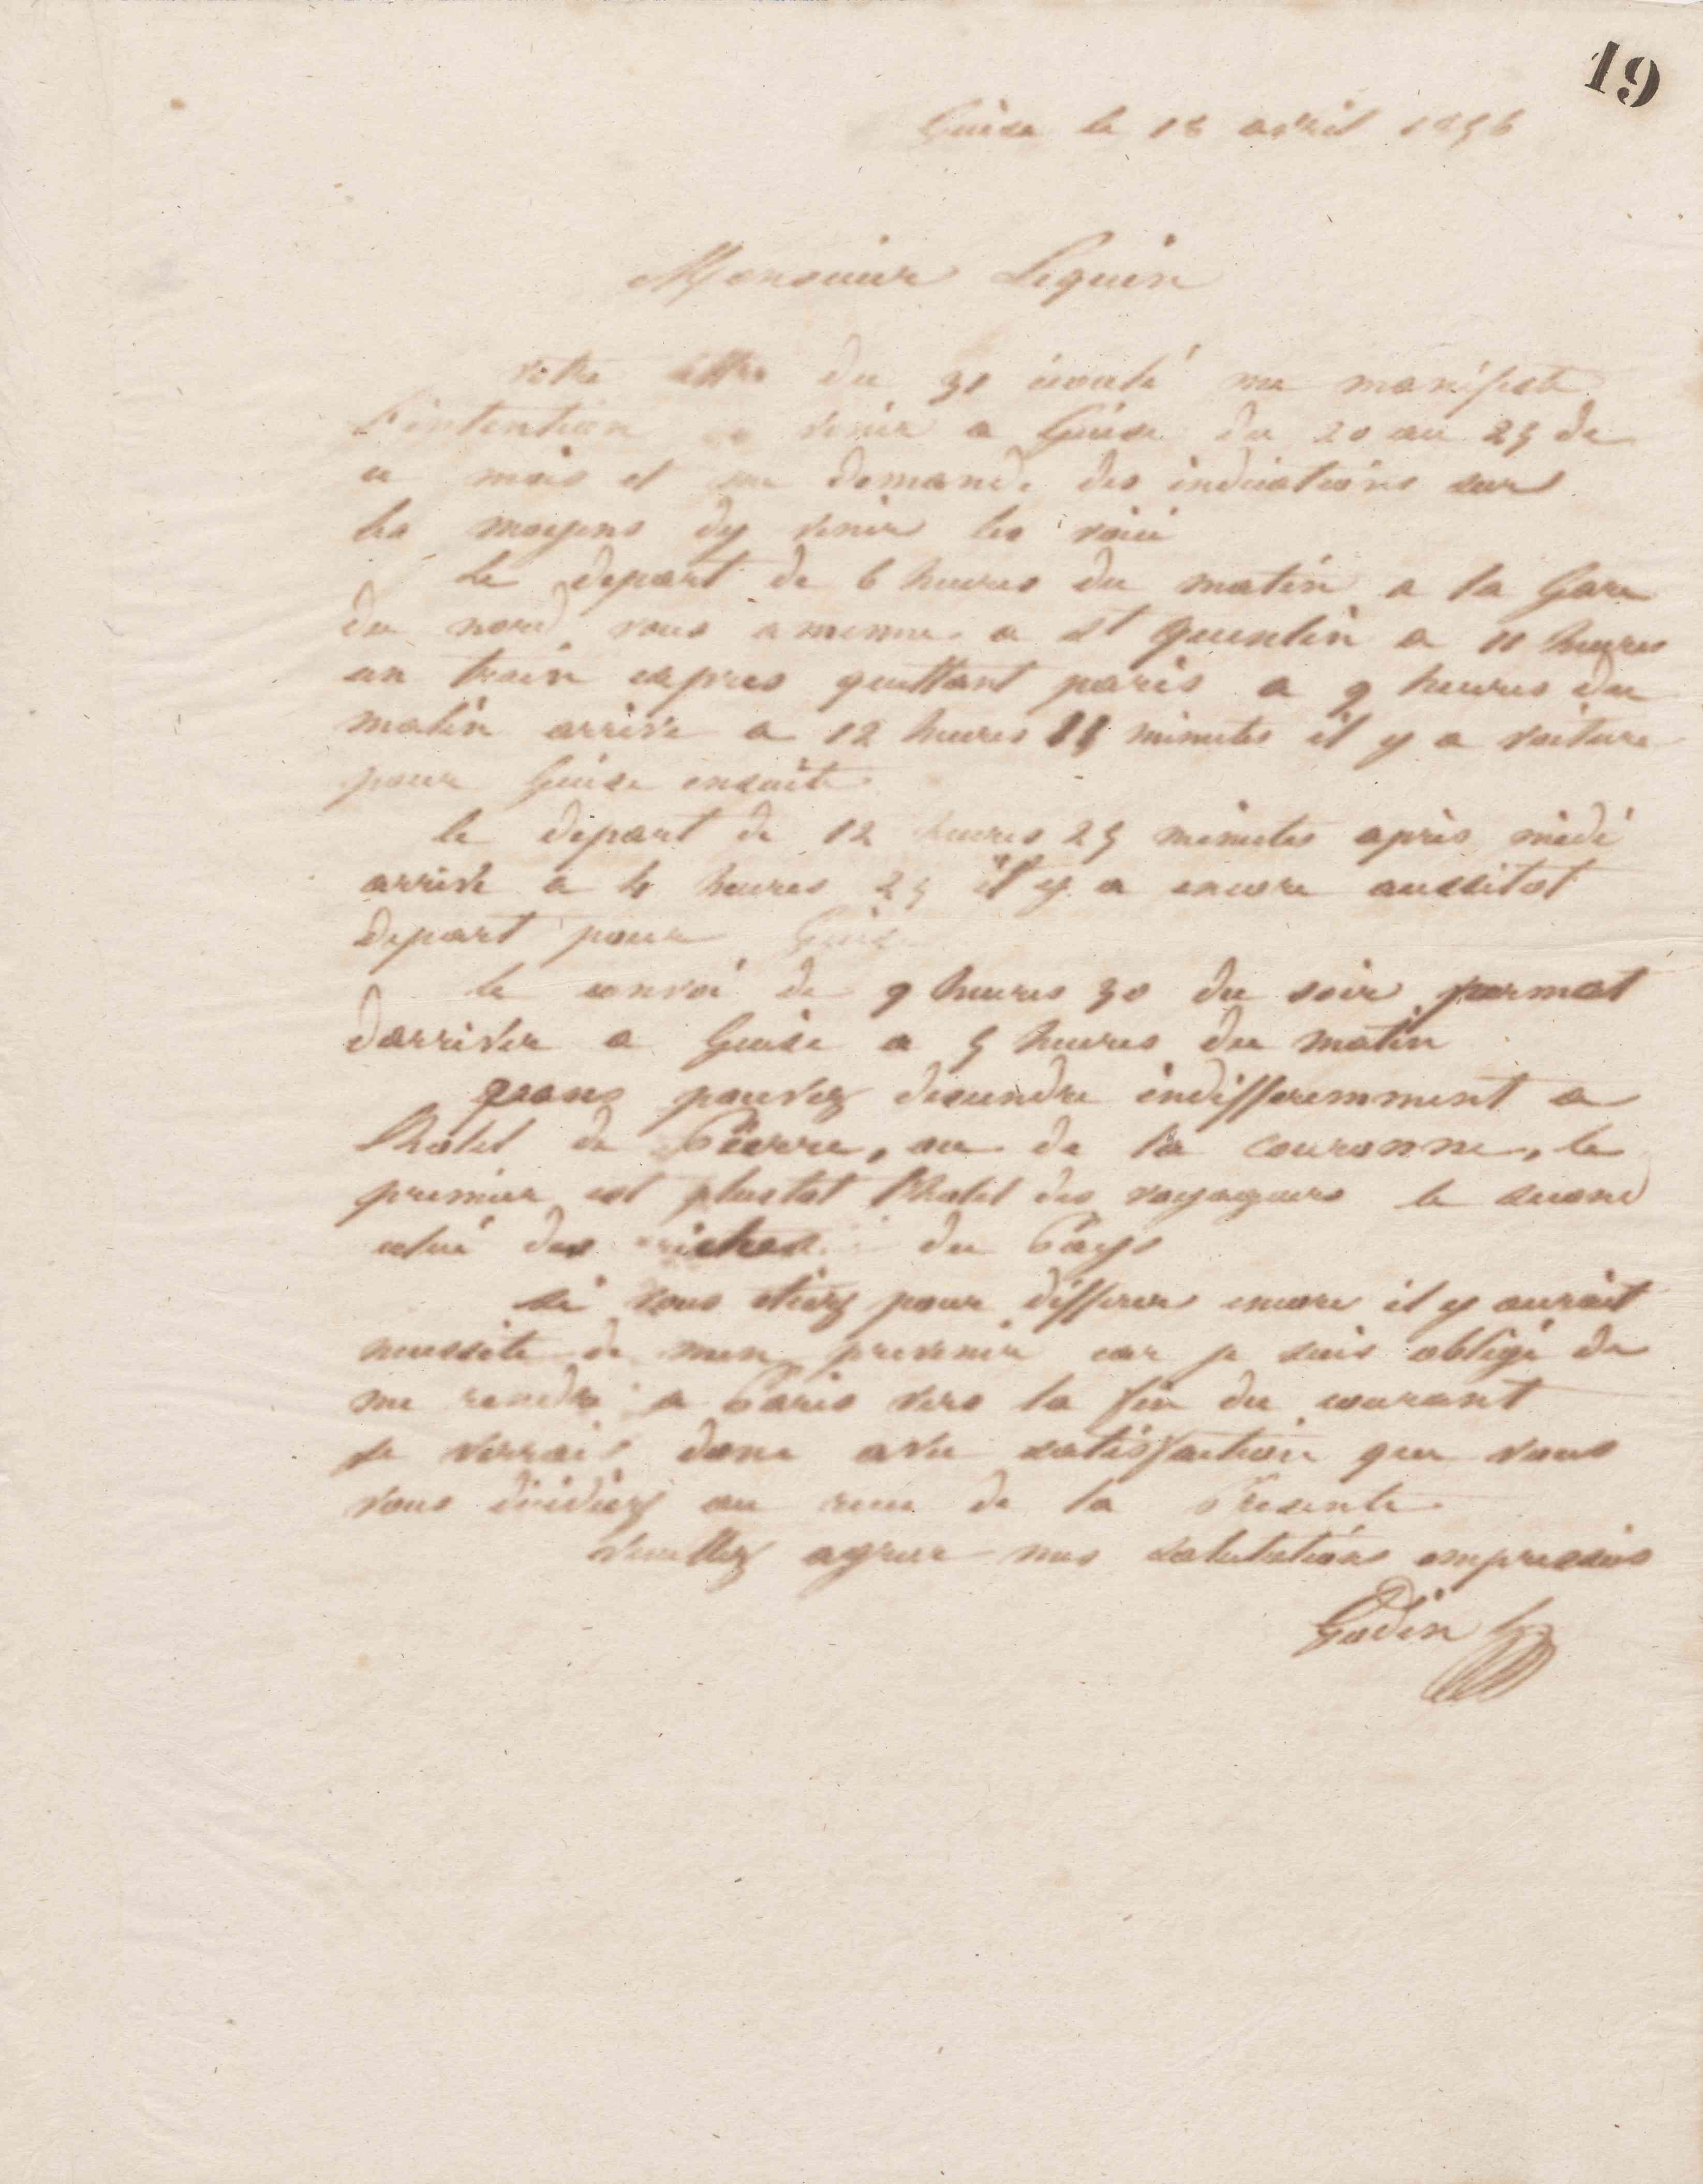 19
Guise le 18 avril 1856
Monsieur Lequin
votre lettre du 30 écoulé me manifeste
l'intention de venir a Guise du 20 au 25 de
ce mois et me demande des indications sur
les moyens dy venir les voici
Le depart de 6 heures du matin a la Gare
du nord vous amenne a St Quentin a 11 heures
un train expres quittant paris a 9 heures du
matin arrive a 12 heures minutes il y a voiture
pour Guise ensuite
le depart de 12 heures 25 minutes après midi
arrive a 4 heures 25 il y a encore aussitot
depart pour Guise
le convoi de 9 heures 30 du soir permet
darriver a Guise a 5 heures du matin
vous pouvez descendre indifferemment a
lhotel de Pierre, ou de la couronne, le
premier est plustot lhotel des voyageurs le second
celui des riches du Pays
si vous étiez pour differer encore il y aurait
necessite de men prevenir car je suis obligé de
me rendre a Paris vers la fin du courant
je verrais donc avec satisfaction que vous
vous décidiez au recu de la Presente
Veuillez agreer mes salutations empressées
Godin